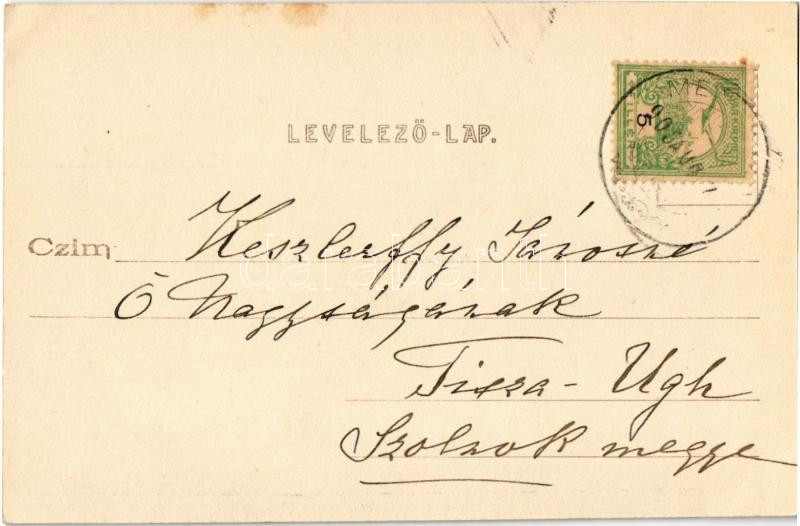 LEVELEZŐ-LAP.
5
Czim
Keszlerffy Járosné
Ő Nagyságának
Tisza-Ugh
Szolnok megye
darabanth